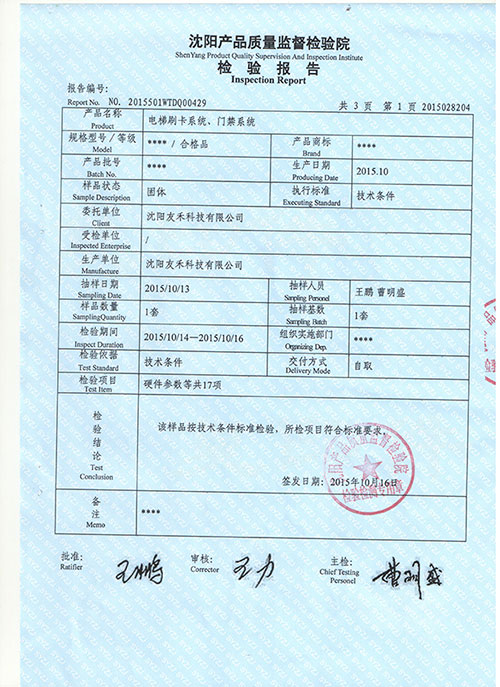 沈阳产品质量监督检验院
ShenYang Product Quality Supervision And Inspection Institute
检 验 报 告
Inspection Report
报告编号：
Report No. NO. 2015501WTDQ00429 共 3 页 第 1 页 2015028204
产品名称 电梯刷卡系统、门禁系统
Product
规格型号／等级 **** / 合格品 产品商标 ****
Model Brand
产品批号 **** 生产日期 2015.10
Batch No. Producing Date
样品状态 固体 执行标准 技术条件
Sample Description Executing Standard
委托单位 沈阳友禾科技有限公司
Client
受检单位 /
Inspected Enterprise
生产单位 沈阳友禾科技有限公司
Manufacture
抽样日期 2015/10/13 抽样人员 王鹏 曹明盛
Sampling Date Sanpling Personel
样品数量 1套 抽样基数 1套
SamplingQuantity Sampling Batch
检验期间 2015/10/14—2015/10/16 组织实施部门 ****
Inspect Duration Organizing Dep.
检验依据 技术条件 交付方式 自取
Test Standard Delivery Mode
检验项目 硬件参数等共17项
Test Item
检验结论 该样品按技术条件标准检验，所检项目符合标准要求。
Test
Conclusion
签发日期：2015年10月16日
备注 ****
Memo
批准： 王鹏 审核： 王力 主检： 曹明盛
Ratifier Corrector Chief Testing
Personel
沈阳产品质量监督检验院
检验检测专用章